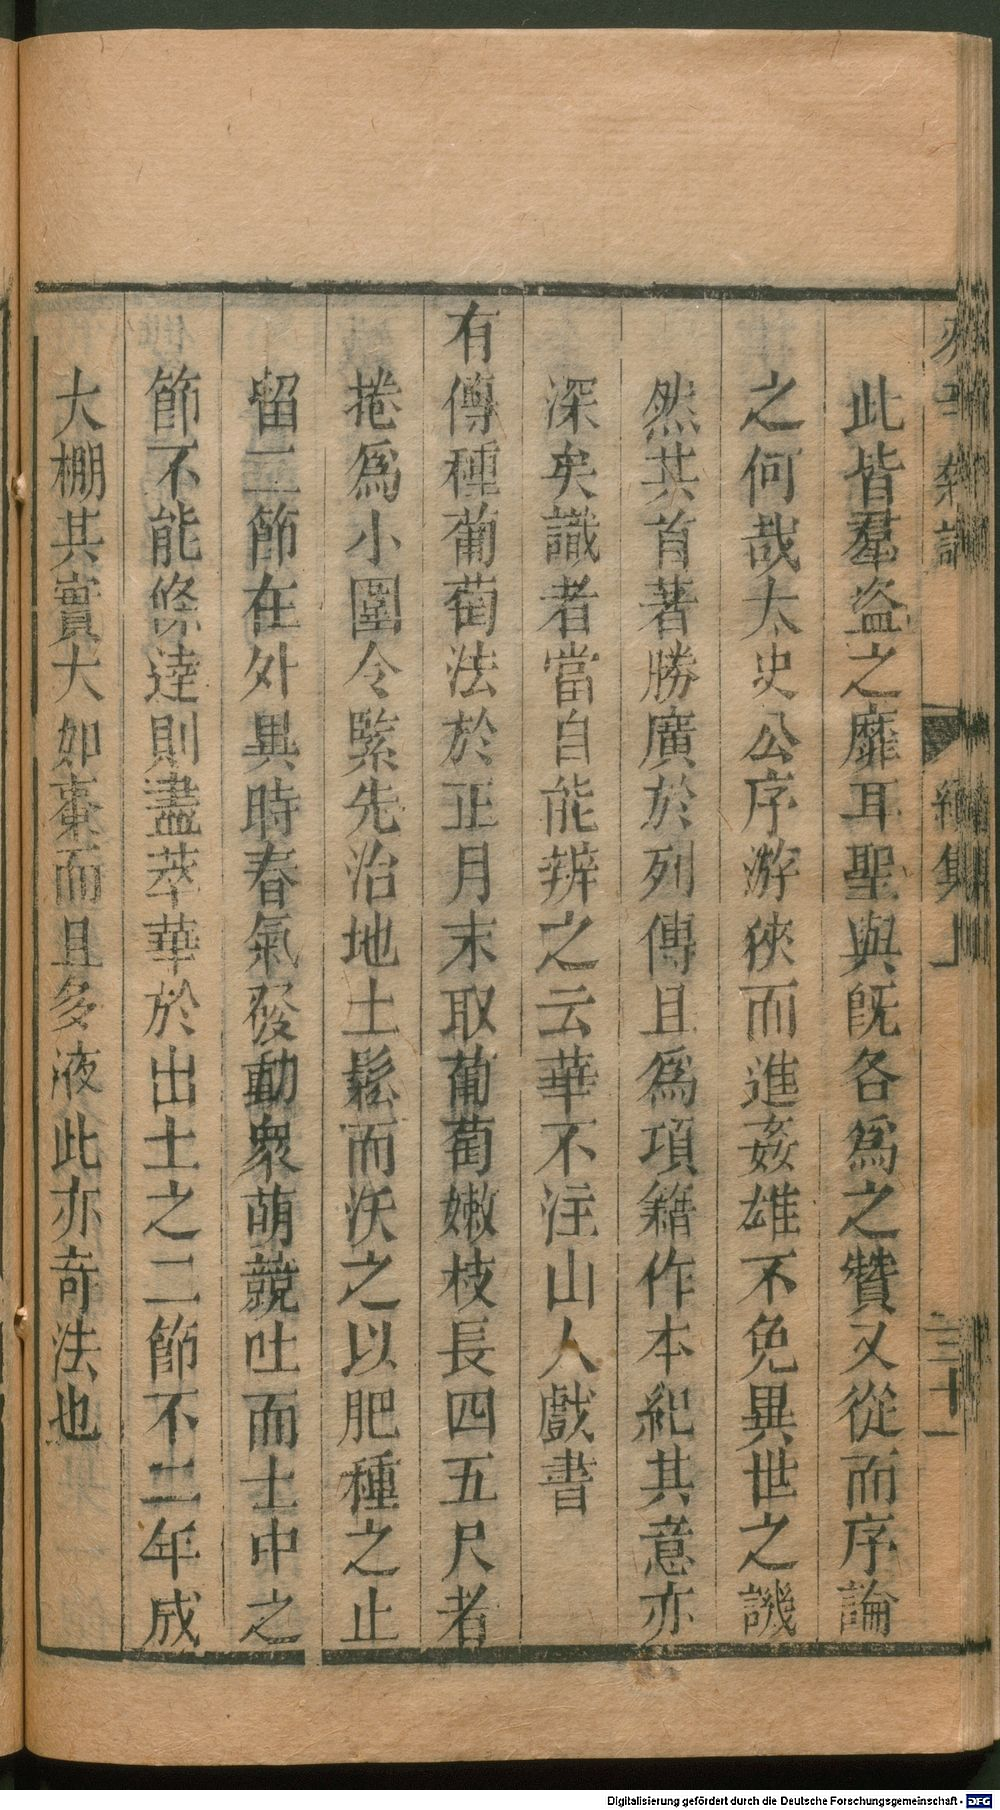 此皆羣盜之靡耳聖與既各爲之贊又從而序論
之何哉太史公序游俠而進姦雄不免異世之譏
然其首著勝廣於列傳且爲項籍作本紀其意亦
深矣識者當自能辨之云華不注山人戲書
有傳種葡萄法於正月末取葡萄嫩枝長四五尺者
捲爲小圈令緊先治地土鬆而沃之以肥種之止
留二節在外異時春氣發動衆萌競吐而土中之
節不能條達則盡萃華於出土之二節不二年成
大棚其實大如棗而且多液此亦奇法也
續集上
三十一
Digitalisierung gefördert durch die Deutsche Forschungsgemeinschaft - DFG